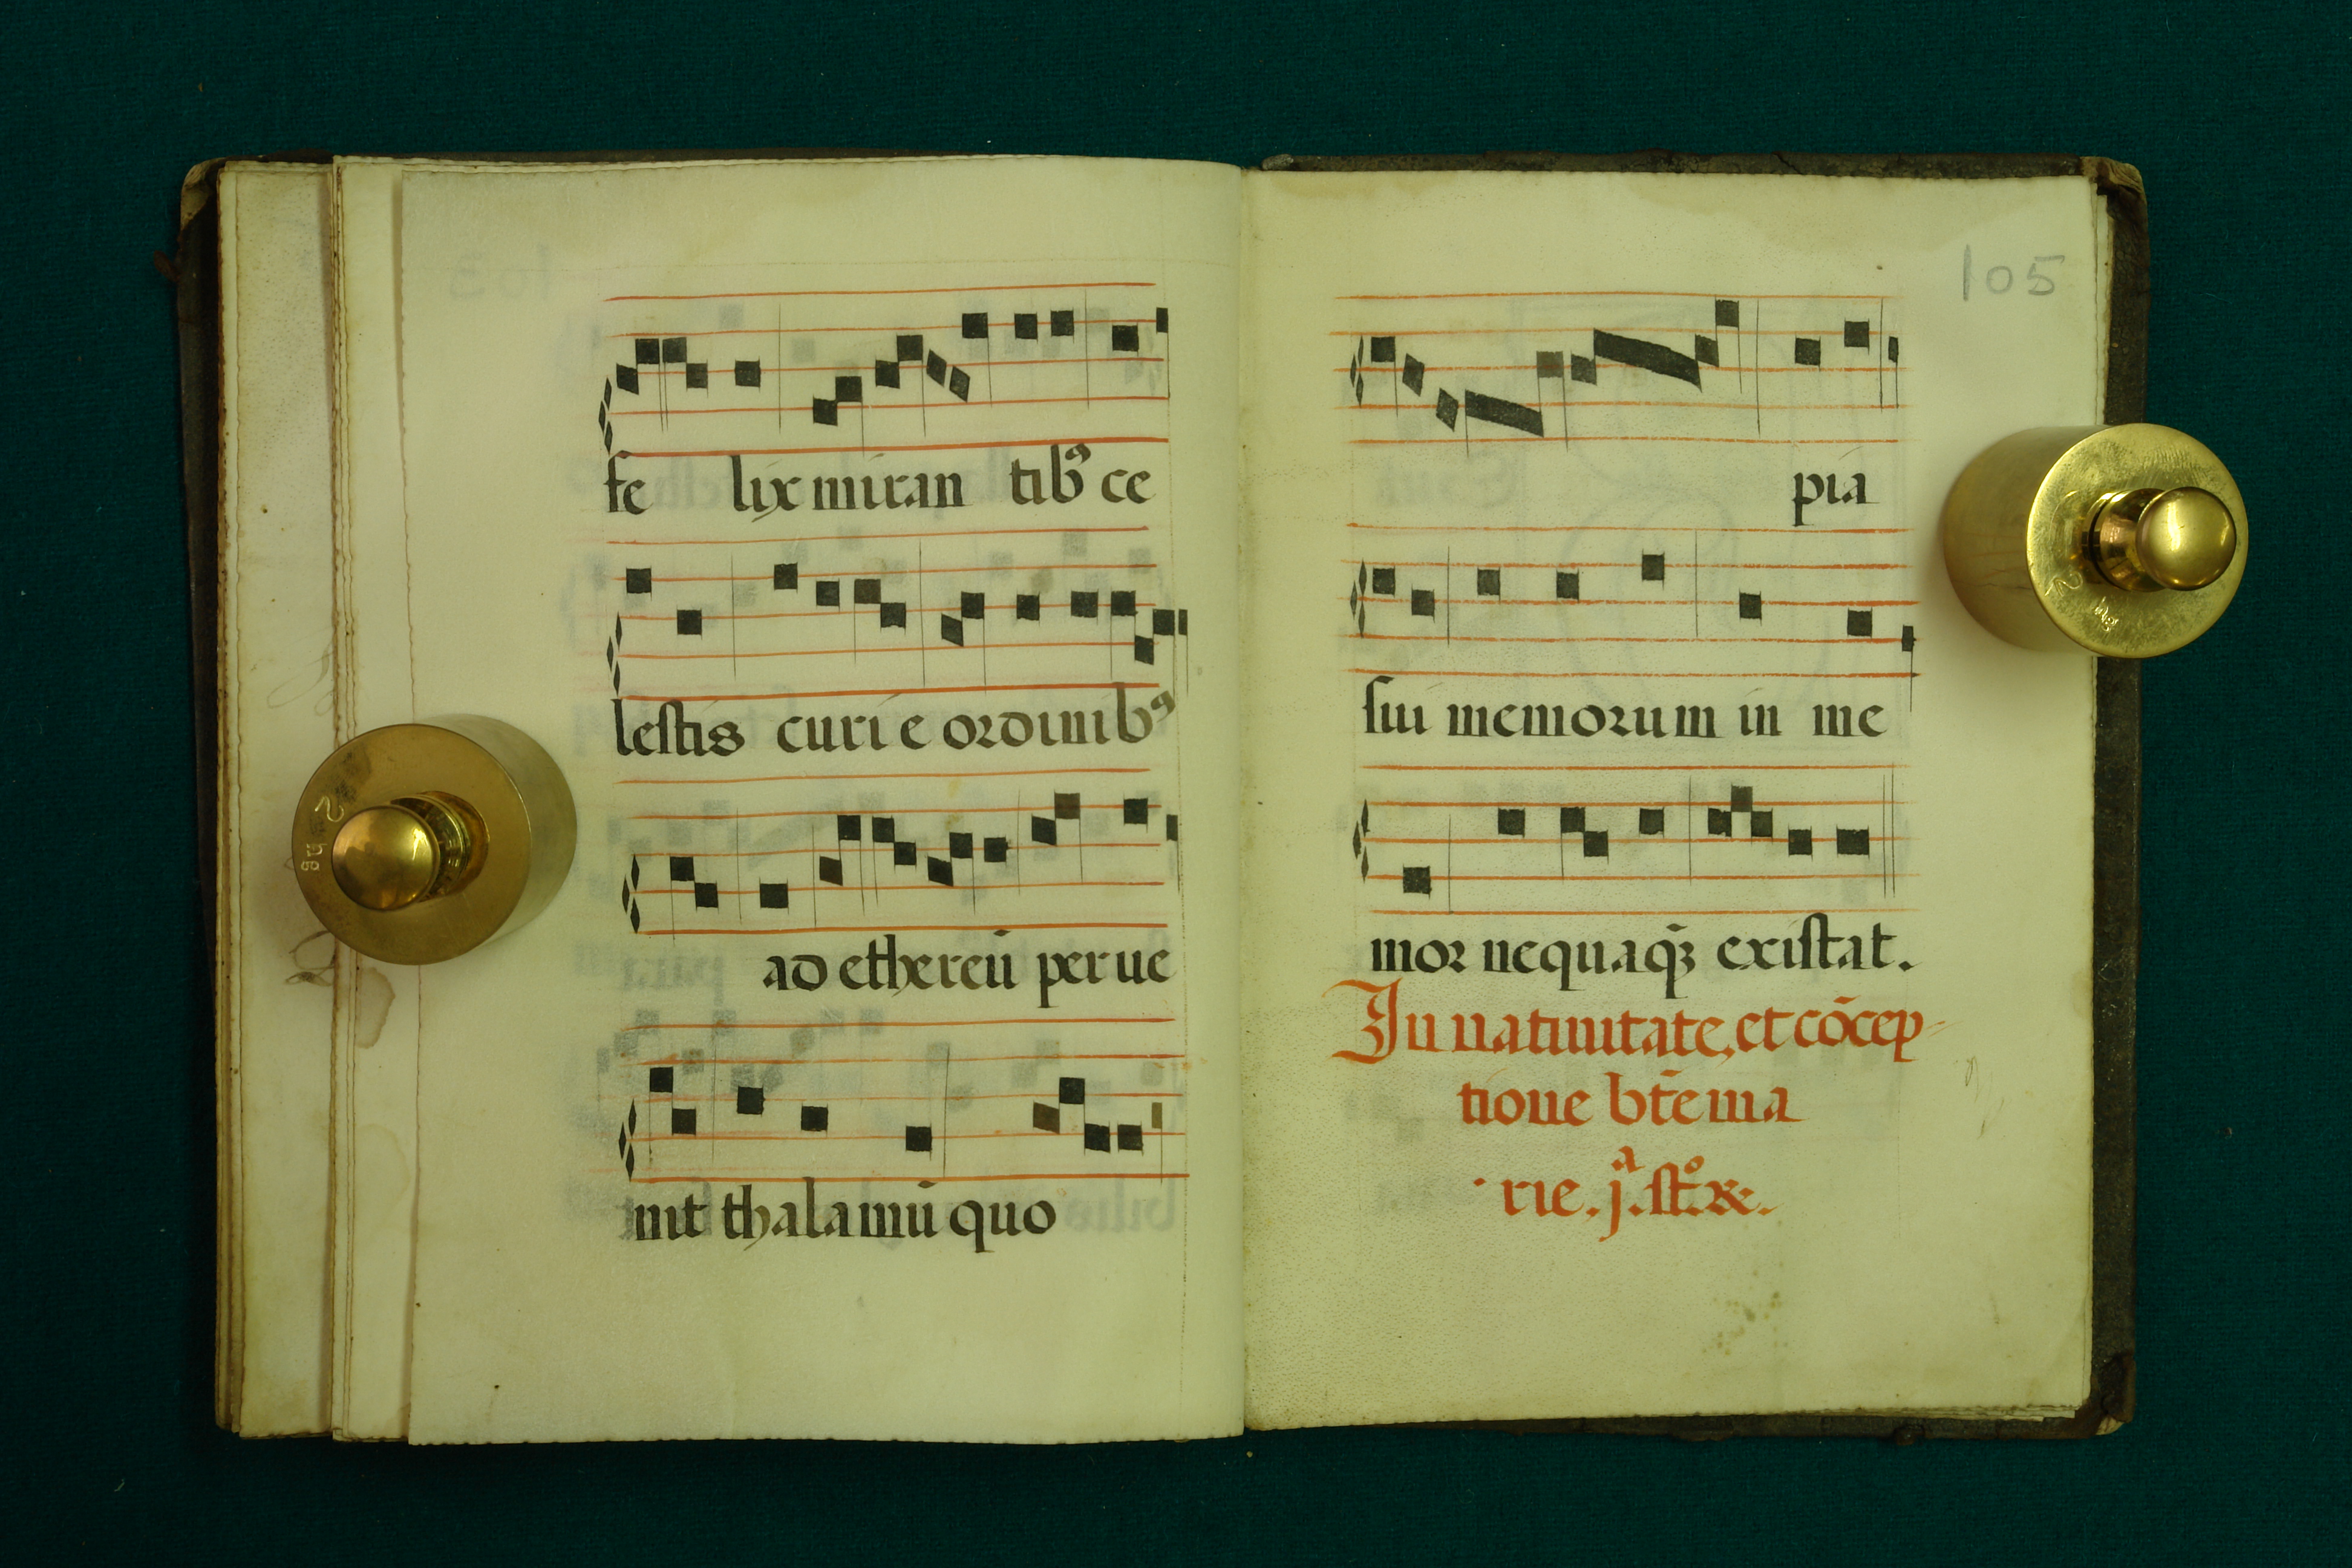 fe lix miran tibꝰ ce
lestis curi e ordinibꝰ
ad ethereū per ue
nit thalamū quo
105
pia
sui memorum in me
mor nequaqꝫ existat.
In natiuitate, et cōcep-
tione bt̄e ma
rie. j.ª
2
hg
2
hg